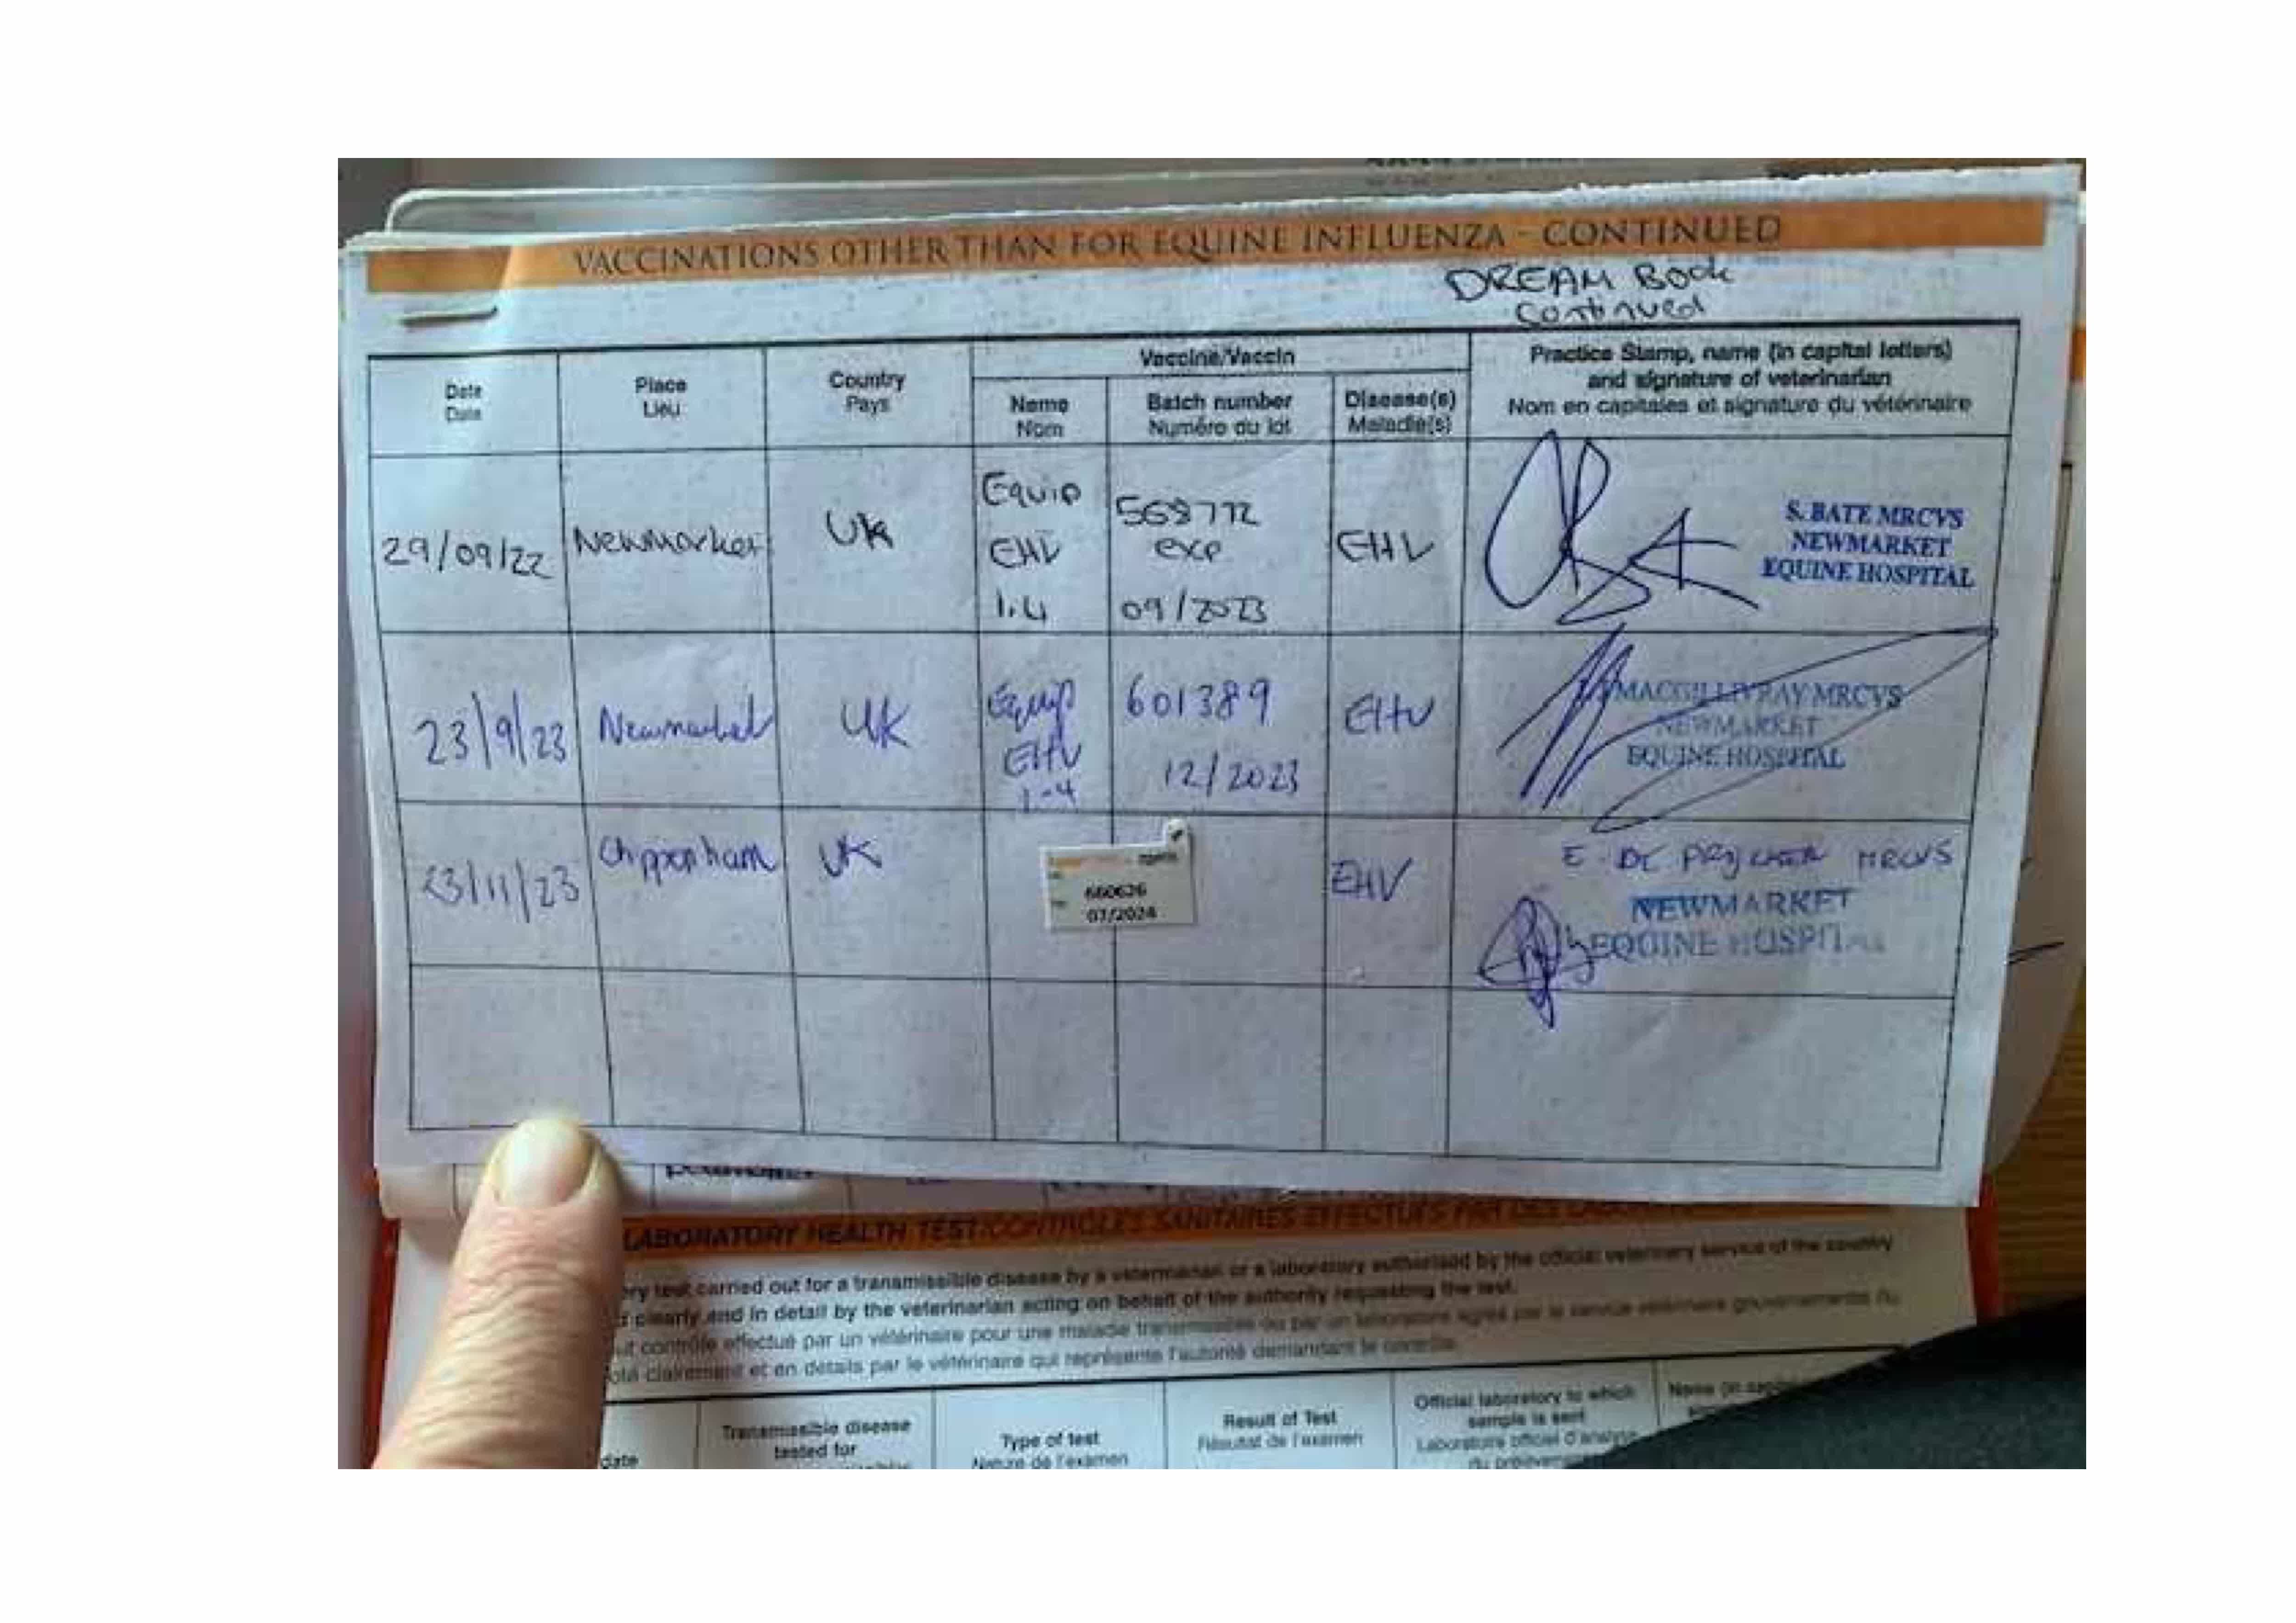 VACCINATIONS OTHER THAN FOR EQUINE INFLUENZA - CONTINUED
DREAM BOOK
Continued
Date
Date
Place
Lieu
Country
Pays
Vaccine/Vaccin
Name
Nom
Batch number
Numéro du lot
Disease(s)
Maladie(s)
Practice Stamp, name (in capital letters)
and signature of veterinarian
Nom en capitales et signature du vétérinaire
29/09/22
Newmarket
UK
Equip
EHV
1.4
568772
exp
09/2023
EHV
S. BATE MRCVS
NEWMARKET
EQUINE HOSPITAL
23/9/23
Newmarket
UK
Equip
EHV
1-4
601389
12/2023
EHV
MACGILLIVRAY MRCVS
NEWMARKET
EQUINE HOSPITAL
23/11/23
Chippenham
UK
660626
07/2024
EHV
E. DE MRCVS
NEWMARKET
EQUINE HOSPITAL
LABORATORY HEALTH TEST/CONTRÔLES SANITAIRES EFFECTUÉS PAR DES
ery test carried out for a transmissible disease by a veterinarian or a laboratory authorised by the official veterinary service of the country
clearly and in detail by the veterinarian acting on behalf of the authority requesting the test.
ut contrôle effectué par un vétérinaire pour une maladie transmissible ou par un laboratoire agréé par le service vétérinaire gouvernemental du
oté clairement et en détails par le vétérinaire qui représente l'autorité demandant le contrôle.
date
Transmissible disease
tested for
Type of test
Nature de l'examen
Result of Test
Résultat de l'examen
Official laboratory to which
sample is sent
Laboratoire officiel d'analyse
du
Name (in